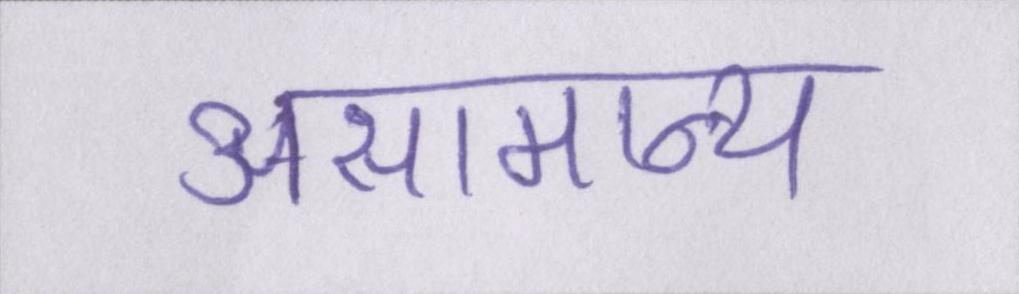 असामान्य